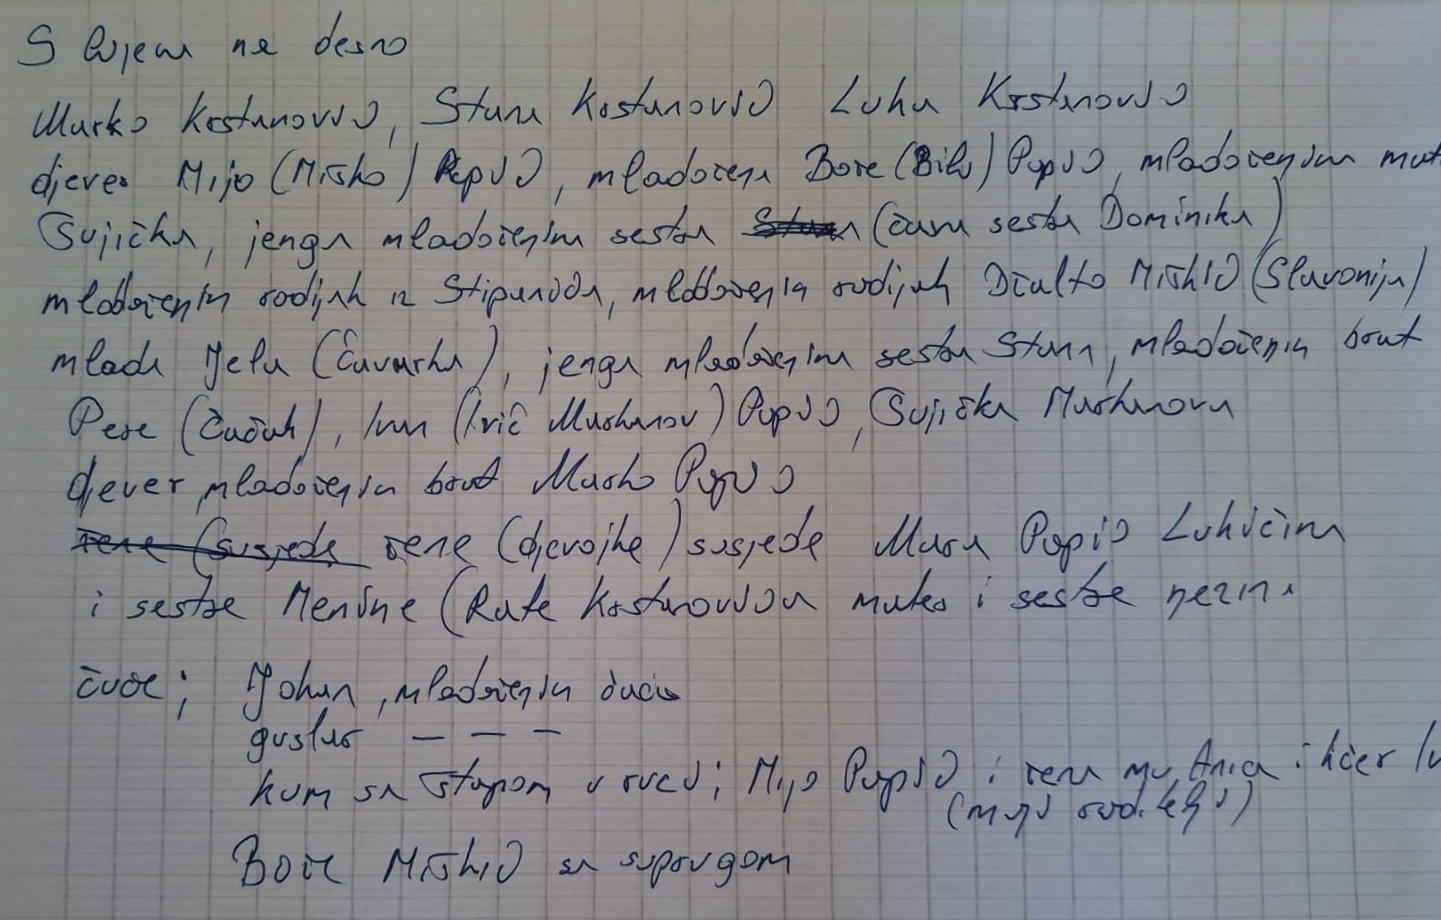 S lijeva na desno
Marko Krstanović, Stana Krstanović Luka Krstanović
djever Mijo (Miško) Papić, mladoženja Bože (Bilo) Papić, mladoženjina mat
Sujička, jenga mladoženjina sestra (ćura sestra Dominika)
mladoženjin rodijak iz Stipanića, mladoženjin rodijak Džalto Miškić (Slavonija)
mlada Jela (Čavarka), jenga mladoženjina sestra Stana, mladoženjin brat
Pere (Čačak), Ivan (Ivič Markanov) Papić, Sujička Markanova
djever mladoženjin brat Marko Papić
žene (susjede žene (djevojke) susjede Mara Papić Lukičina
i sestre (Rute Krstanovića mater i sestre
čuče; Johan, mladoženjin ćaća
guslar - - -
kum sa štapom u ruci; Mijo Papić i žena mu Anica i kćer
(moji roditelji)
Bože Miškić sa suprugom